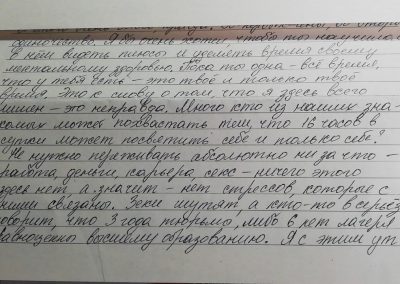 одиночество. Я бы очень хотел, чтобы ты научилась
в нём видеть плюсы и уделять время своему
ментальному здоровью. Пока ты одна - всё время,
что у тебя есть - это твоё и только твоё
время. Это к слову о том, что я здесь всего
лишен - это неправда. Много кто из наших зна-
комых может похвастать тем, что 16 часов в
сутки может посвятить себе и только себе?"
"Не нужно переживать абсолютно ни за что -
работа, деньги, карьера, секс - ничего этого
здесь нет, а значит - нет стрессов, которые с
ними связаны. Зеки шутят, а кто-то в серьёз
говорит, что 3 года тюрьмы, либо 6 лет лагеря
равноценны высшему образованию. Я с этим ут